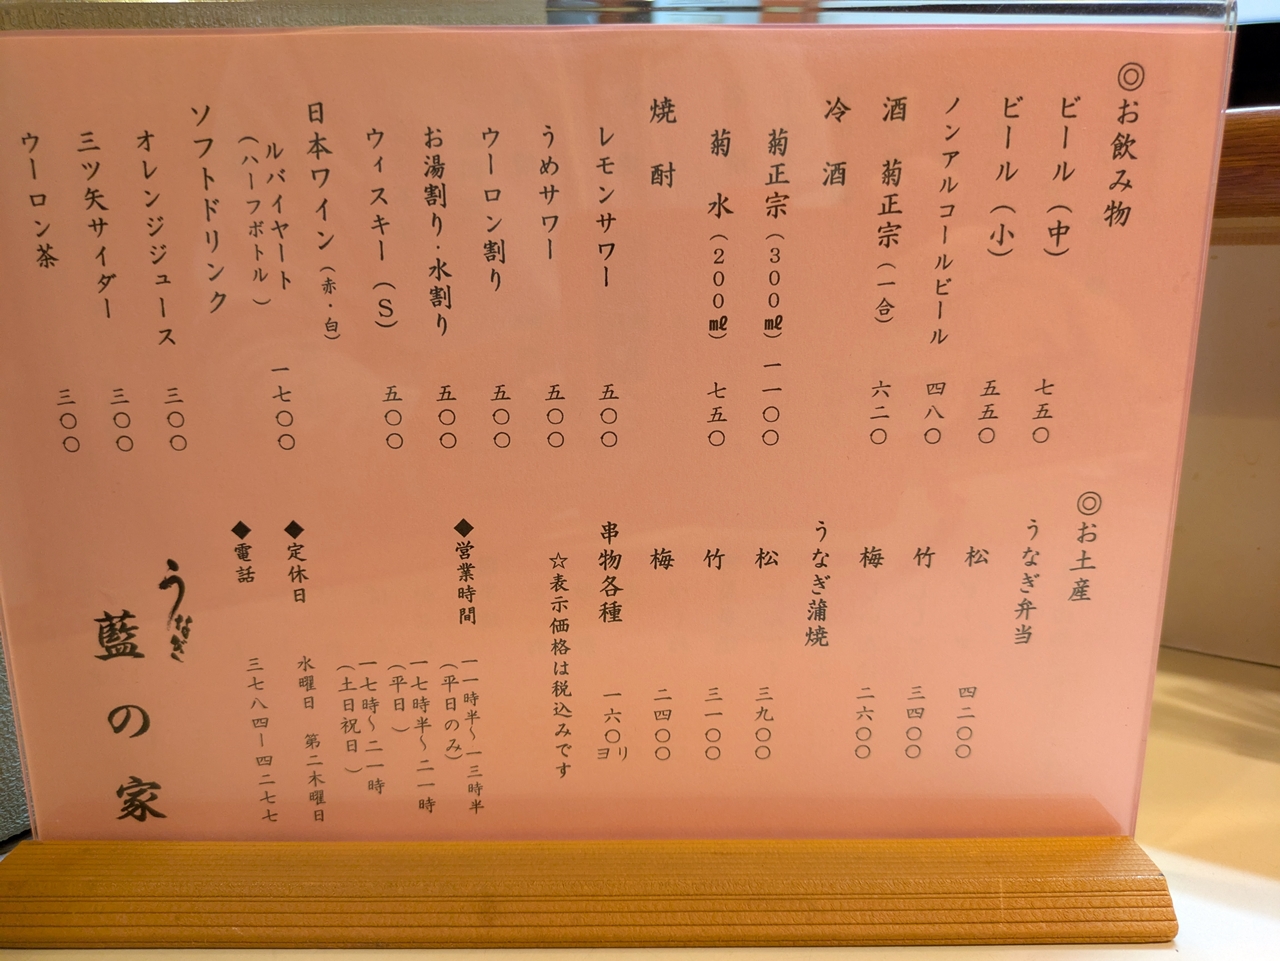 ◎お飲み物
ビール（中） 七五〇
ビール（小） 五五〇
ノンアルコールビール 四八〇
酒 菊正宗（一合） 六二〇
冷酒
菊正宗（３００㎖） 一一〇〇
菊水（２００㎖） 七五〇
焼酎
レモンサワー 五〇〇
うめサワー 五〇〇
ウーロン割り 五〇〇
お湯割り・水割り 五〇〇
ウィスキー（Ｓ） 五〇〇
日本ワイン（赤・白）
ルバイヤート 一七〇〇
（ハーフボトル）
ソフトドリンク
オレンジジュース 三〇〇
三ツ矢サイダー 三〇〇
ウーロン茶 三〇〇
◎お土産
うなぎ弁当
松 四二〇〇
竹 三四〇〇
梅 二六〇〇
うなぎ蒲焼
松 三九〇〇
竹 三一〇〇
梅 二四〇〇
串物各種 一六〇ヨリ
☆表示価格は税込みです
◆営業時間 一一時半〜一三時半
（平日のみ）
一七時半〜二一時
（平日）
一七時〜二一時
（土日祝日）
◆定休日 水曜日 第二木曜日
◆電話 三七八四ー四二七七
うなぎ
藍の家